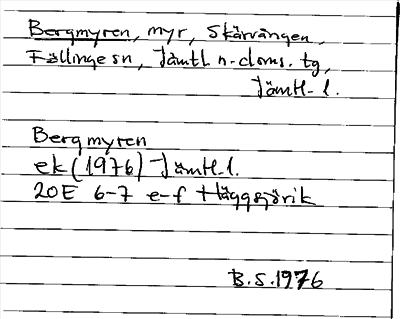 Bergmyren, myr, Skärvången,
Föllinge sn, Jämtl. n. doms. tg,
Jämtl. l.
Bergmyren
ek (1976) Jämtl. l.
20E 6-7 e-f Häggsjövik
B.S. 1976